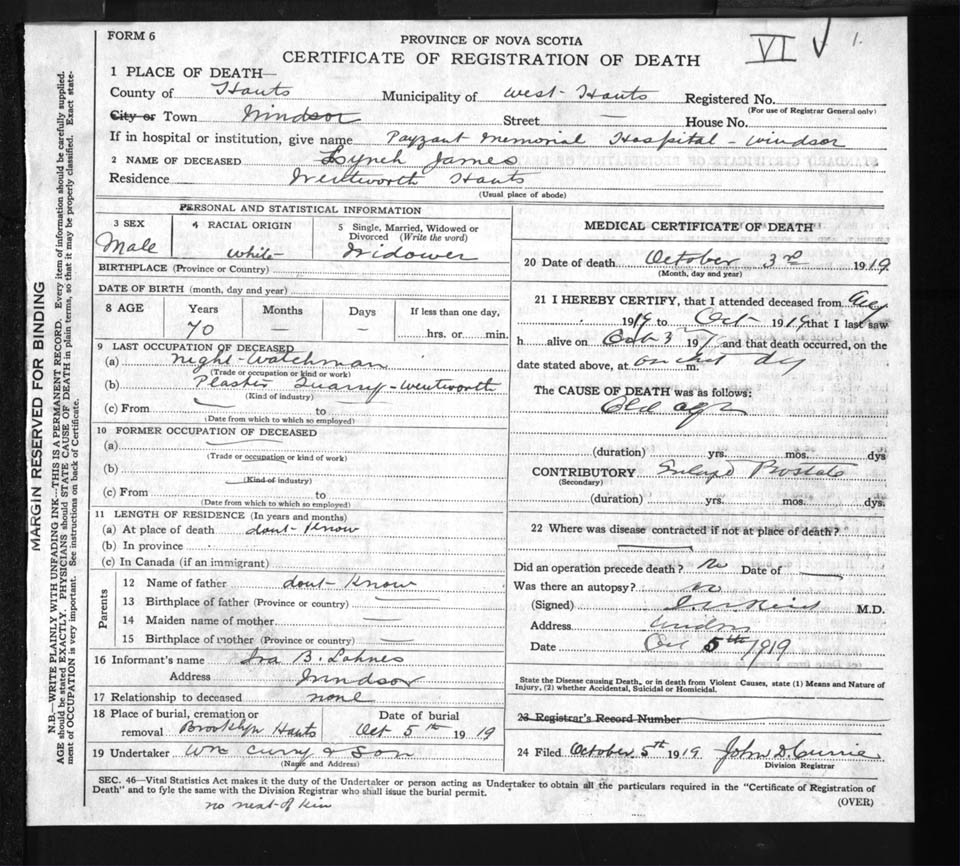 FORM 6
PROVINCE OF NOVA SCOTIA
VI ✓ 1.
CERTIFICATE OF REGISTRATION OF DEATH
1 PLACE OF DEATH—
County of Hants Municipality of West-Hants Registered No.
(For use of Registrar General only)
City or Town Windsor Street — House No.
If in hospital or institution, give name Payzant Memorial Hospital - Windsor
2 NAME OF DECEASED Lynch James
Residence Wentworth Hants
(Usual place of abode)
PERSONAL AND STATISTICAL INFORMATION
3 SEX Male
4 RACIAL ORIGIN White
5 Single, Married, Widowed or Divorced (Write the word) Widower
BIRTHPLACE (Province or Country)
DATE OF BIRTH (month, day and year)
8 AGE Years Months Days If less than one day,
70 — — hrs. or min.
9 LAST OCCUPATION OF DECEASED
(a) Night-Watchman
(Trade or occupation or kind or work)
(b) Plaster Quarry - Wentworth
(Kind of industry)
(c) From to
(Date from which to which so employed)
10 FORMER OCCUPATION OF DECEASED
(a)
(Trade or occupation or kind of work)
(b)
(Kind of industry)
(c) From to
(Date from which to which so employed)
11 LENGTH OF RESIDENCE (In years and months)
(a) At place of death dont-Know
(b) In province
(c) In Canada (if an immigrant)
Parents
12 Name of father dont-Know
13 Birthplace of father (Province or country) —
14 Maiden name of mother —
15 Birthplace of mother (Province or country) —
16 Informant's name Ira B. Lohnes
Address Windsor
17 Relationship to deceased none
18 Place of burial, cremation or Date of burial
removal Brooklyn Hants Oct 5th 1919
19 Undertaker Wm Curry & Son
(Name and Address)
MEDICAL CERTIFICATE OF DEATH
20 Date of death October 3rd 1919
(Month, day and year)
21 I HEREBY CERTIFY, that I attended deceased from
1919 to Oct 1919 that I last saw
h alive on Oct 3 19 and that death occurred, on the
date stated above, at m.
The CAUSE OF DEATH was as follows:
Old age
(duration) yrs. mos. dys
CONTRIBUTORY Prostate
(Secondary)
(duration) yrs. mos. dys.
22 Where was disease contracted if not at place of death?
—
Did an operation precede death? no Date of —
Was there an autopsy? no
(Signed) M.D.
Address Windsor
Date Oct 5th 1919
State the Disease causing Death, or in death from Violent Causes, state (1) Means and Nature of
Injury, (2) whether Accidental, Suicidal or Homicidal.
23 Registrar's Record Number
24 Filed October 5th 1919 John D. Currie
Division Registrar
SEC. 46—Vital Statistics Act makes it the duty of the Undertaker or person acting as Undertaker to obtain all the particulars required in the "Certificate of Registration of
Death" and to fyle the same with the Division Registrar who shall issue the burial permit.
(OVER)
no next-of kin
MARGIN RESERVED FOR BINDING
N.B.—WRITE PLAINLY WITH UNFADING INK—THIS IS A PERMANENT RECORD. Every item of information should be carefully supplied.
AGE should be stated EXACTLY. PHYSICIANS should STATE CAUSE OF DEATH in plain terms, so that it may be properly classified. Exact state-
ment of OCCUPATION is very important. See instructions on back of Certificate.